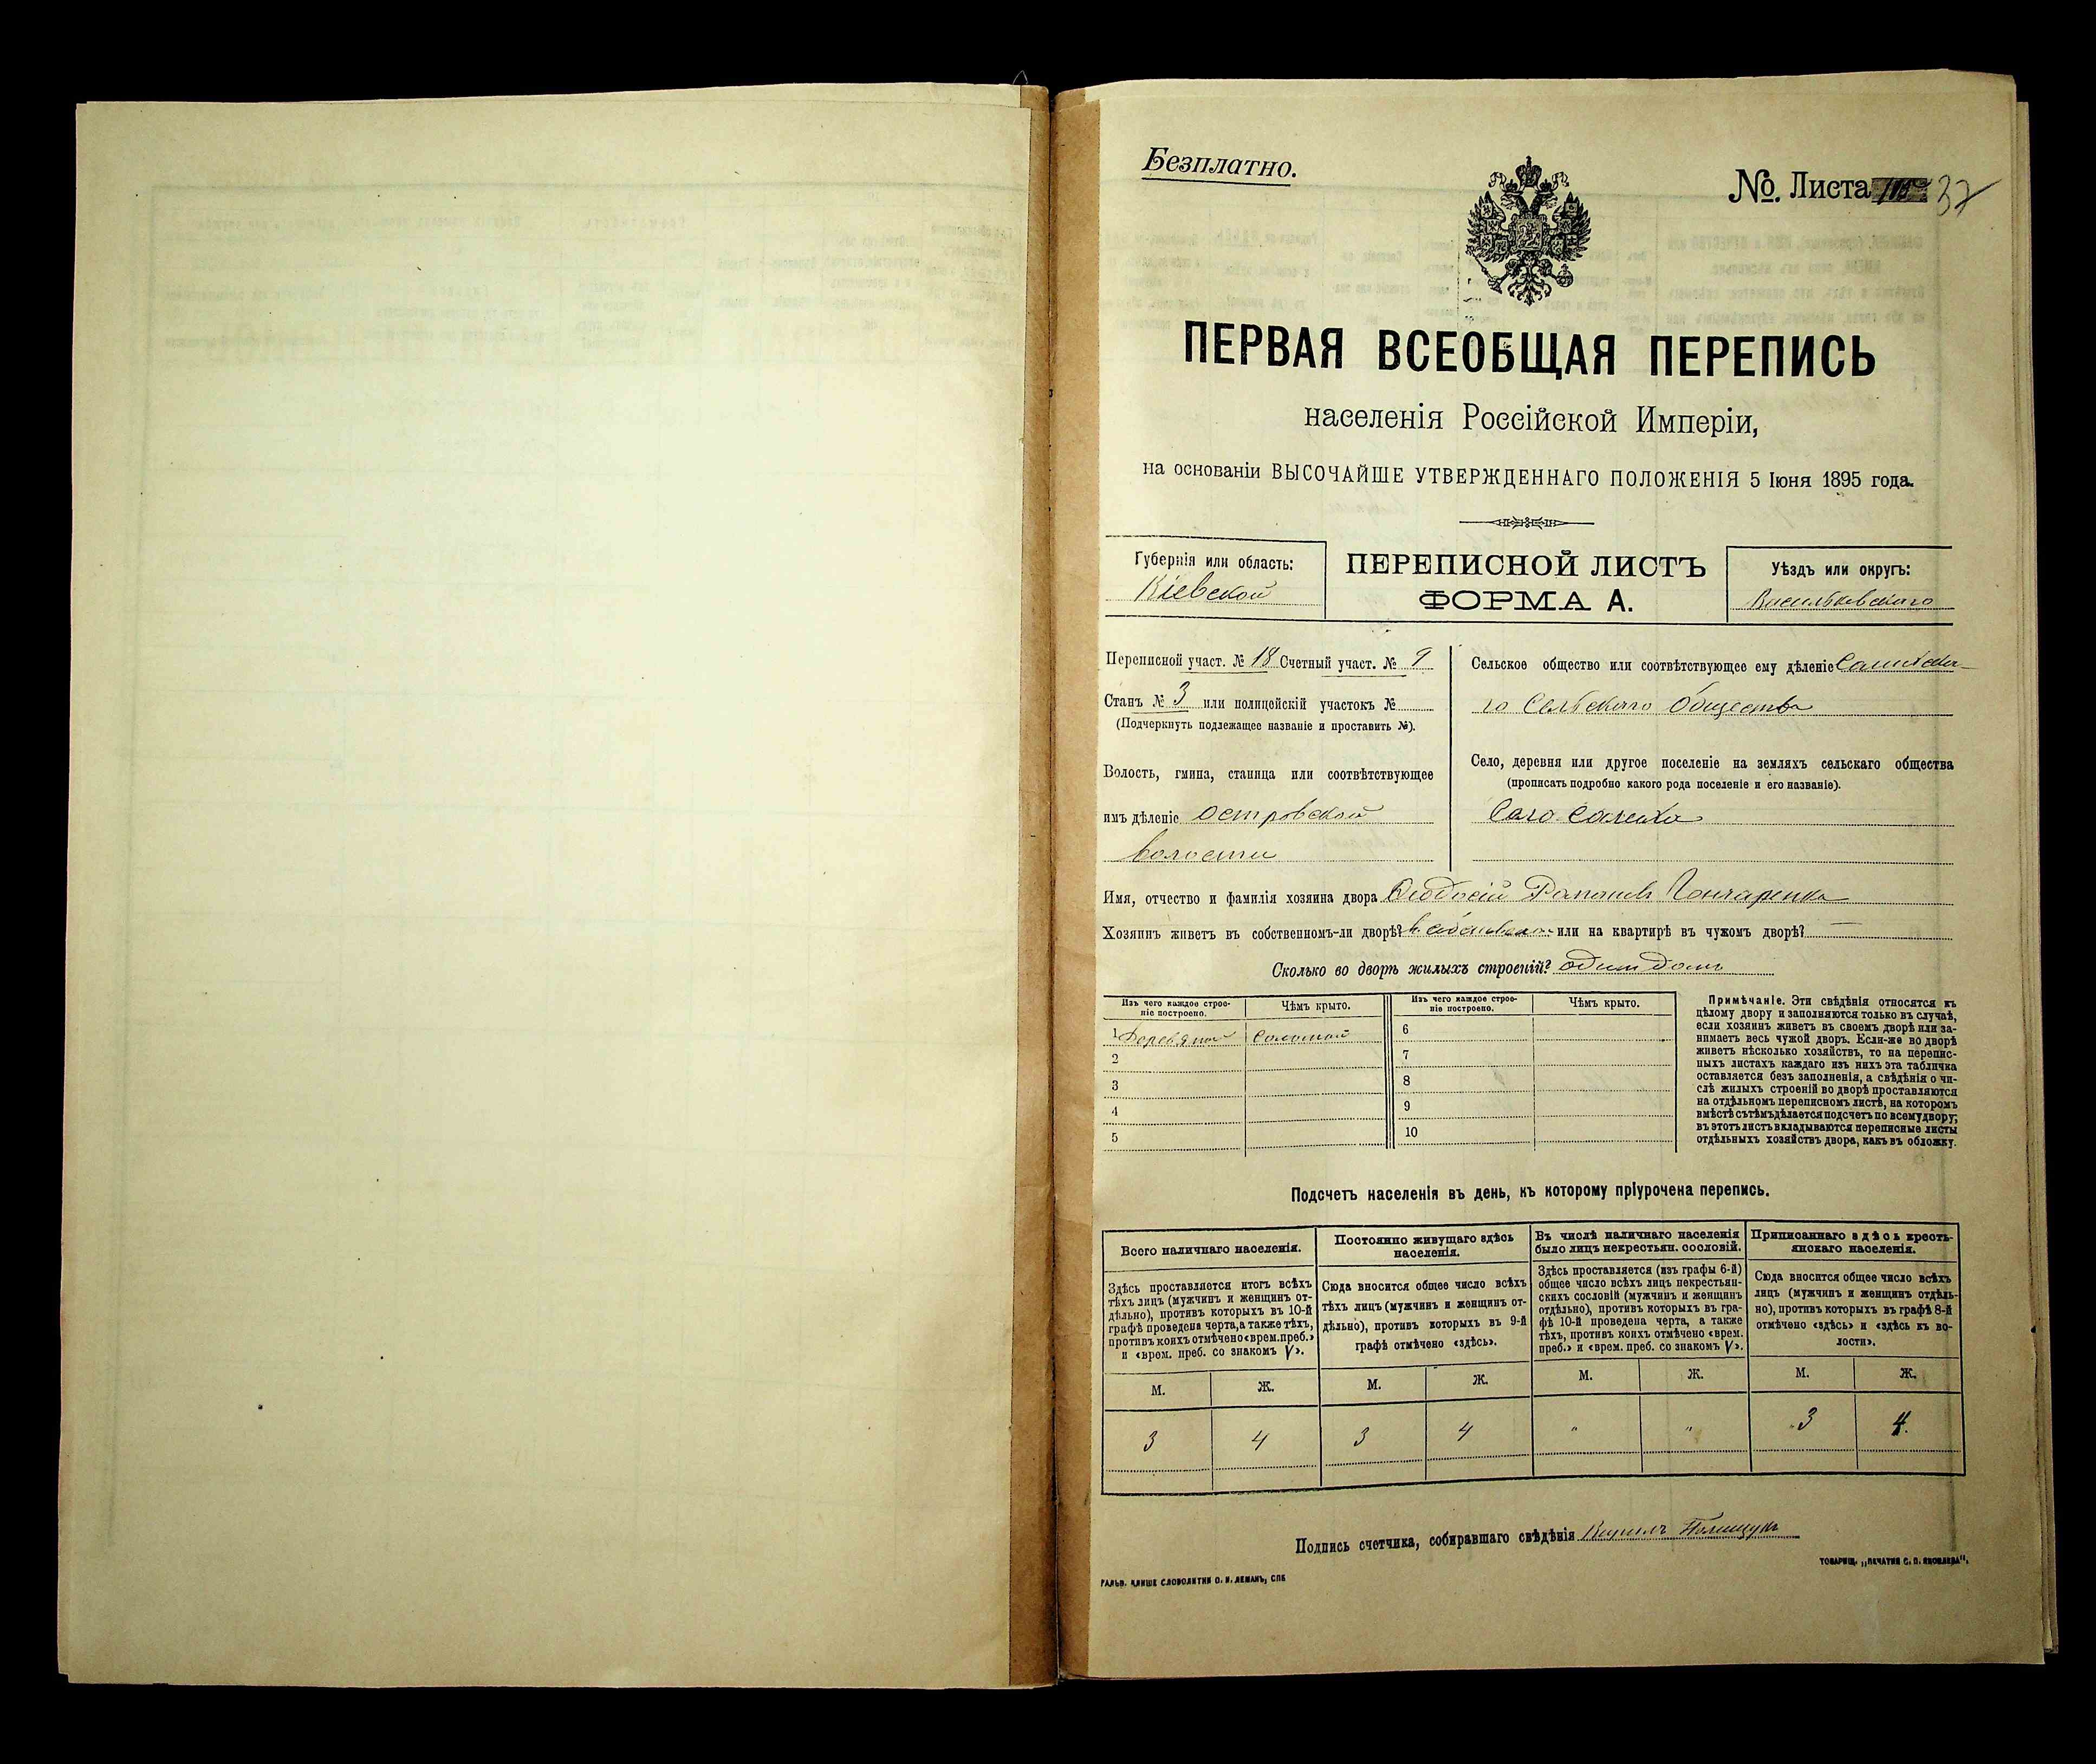 Безплатно.
№. Листа 37
ПЕРВАЯ ВСЕОБЩАЯ ПЕРЕПИСЬ
населенія Россійской Имперіи,
на основаніи ВЫСОЧАЙШЕ УТВЕРЖДЕННАГО ПОЛОЖЕНІЯ 5 Іюня 1895 года.
Губернія или область:
Кіевской
ПЕРЕПИСНОЙ ЛИСТЪ
ФОРМА А.
Уѣздъ или округъ:
Васильковскаго
Переписной участ. № 18 Счетный участ. № 9
Станъ № 3 или полицейскій участокъ №
(Подчеркнуть подлежащее названіе и проставить №).
Волость, гмина, станица или соотвѣтствующее
имъ дѣленіе Островской
волости
Сельское общество или соотвѣтствующее ему дѣленіе
го Сельскаго Общества
Село, деревня или другое поселеніе на земляхъ сельскаго общества
(прописать подробно какого рода поселеніе и его названіе).
Село Салиха
Имя, отчество и фамилія хозяина двора Ѳеодосій Гончаренко
Хозяинъ живетъ въ собственномъ-ли дворѣ? или на квартирѣ въ чужомъ дворѣ? —
Сколько во дворѣ жилыхъ строеній? один домъ
Изъ чего каждое строе-
ніе построено.
Чѣмъ крыто.
Изъ чего каждое строе-
ніе построено.
Чѣмъ крыто.
1 Деревяной Соломой
2
3
4
5
6
7
8
9
10
Примѣчаніе. Эти свѣдѣнія относятся къ
цѣлому двору и заполняются только въ случаѣ,
если хозяинъ живетъ въ своемъ дворѣ или за-
нимаетъ весь чужой дворъ. Если-же во дворѣ
живетъ нѣсколько хозяйствъ, то на перепис-
ныхъ листахъ каждаго изъ нихъ эта табличка
оставляется безъ заполненія, а свѣдѣнія о чи-
слѣ жилыхъ строеній во дворѣ проставляются
на отдѣльномъ переписномъ листѣ, на которомъ
вмѣстѣ съ тѣмъ дѣлается подсчетъ по всему двору;
въ этотъ листъ вкладываются переписные листы
отдѣльныхъ хозяйствъ двора, какъ въ обложку.
Подсчетъ населенія въ день, къ которому пріурочена перепись.
Всего наличнаго населенія.
Здѣсь проставляется итогъ всѣхъ
тѣхъ лицъ (мужчинъ и женщинъ от-
дѣльно), противъ которыхъ въ 10-й
графѣ проведена черта, а также тѣхъ,
противъ коихъ отмѣчено «врем. преб.»
и «врем. преб. со знакомъ V».
Постоянно живущаго здѣсь
населенія.
Сюда вносится общее число всѣхъ
тѣхъ лицъ (мужчинъ и женщинъ от-
дѣльно), противъ которыхъ въ 9-й
графѣ отмѣчено «здѣсь».
Въ числѣ наличнаго населенія
было лицъ некрестьян. сословій.
Здѣсь проставляется (изъ графы 6-й)
общее число всѣхъ лицъ некрестьян-
скихъ сословій (мужчинъ и женщинъ
отдѣльно), противъ которыхъ въ гра-
фѣ 10-й проведена черта, а также
тѣхъ, противъ коихъ отмѣчено «врем.
преб.» и «врем. преб. со знакомъ V».
Приписаннаго здѣсь кресть-
янскаго населенія.
Сюда вносится общее число всѣхъ
лицъ (мужчинъ и женщинъ отдѣль-
но), противъ которыхъ въ графѣ 8-й
отмѣчено «здѣсь» и «здѣсь къ во-
лости».
М. Ж. М. Ж. М. Ж. М. Ж.
3 4 3 4 " " 3 4.
Подпись счетчика, собиравшаго свѣдѣнія Кирилъ Полищукъ
ГАЛЬВ. КЛИШЕ СЛОВОЛИТНИ О. И. ЛЕМАНЪ, СПБ
ТОВАРИЩ. „ПЕЧАТНЯ С. П. ЯКОВЛЕВА".